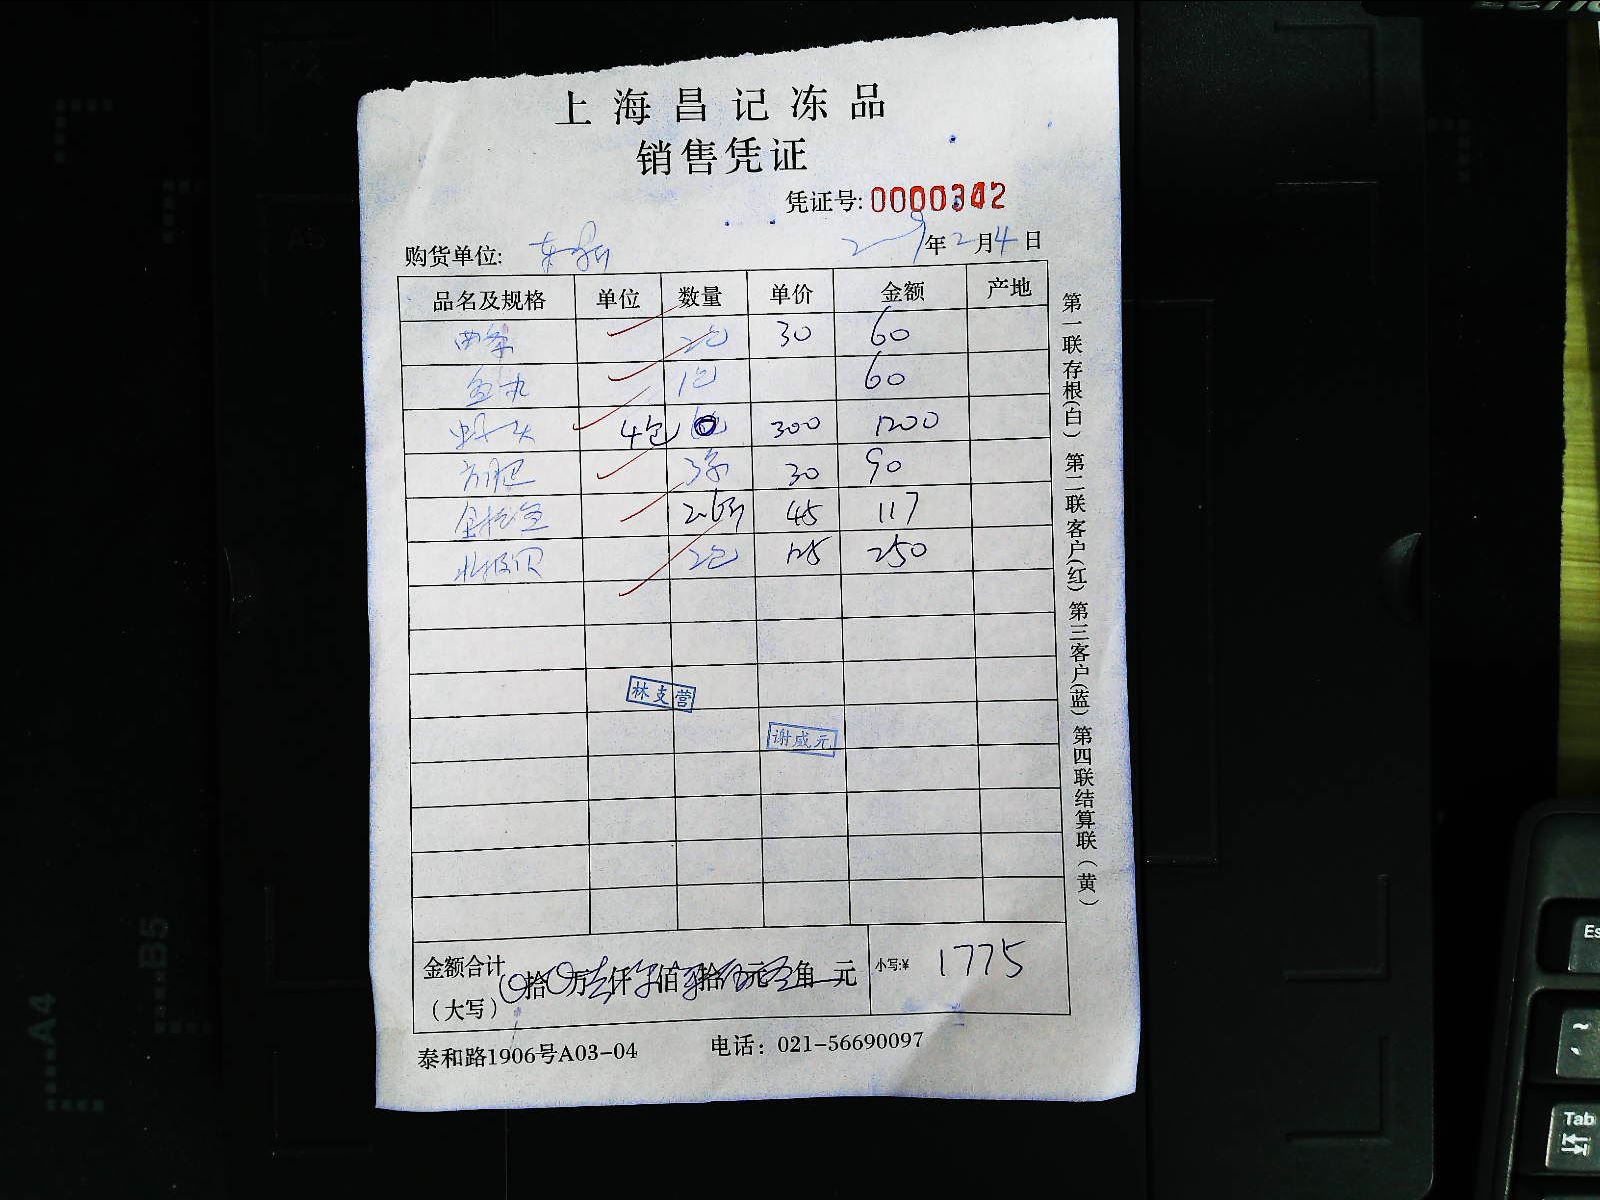 上海昌记冻品
销售凭证
凭证号: 0000342
购货单位: 年2月4日
品名及规格 单位 数量 单价 金额 产地
2包 30 60
1包 60
虾头 4包 300 1200
方肥 3条 30 90
金枪鱼 2.6斤 45 117
北极贝 2包 125 250
林支营
谢咸元
金额合计
(大写) 拾万仟佰拾元角元 小写:¥ 1775
泰和路1906号A03-04 电话: 021-56690097
第一联存根(白) 第二联客户(红) 第三客户(蓝) 第四联结算联(黄)
A4
B5
Es
~
Tab